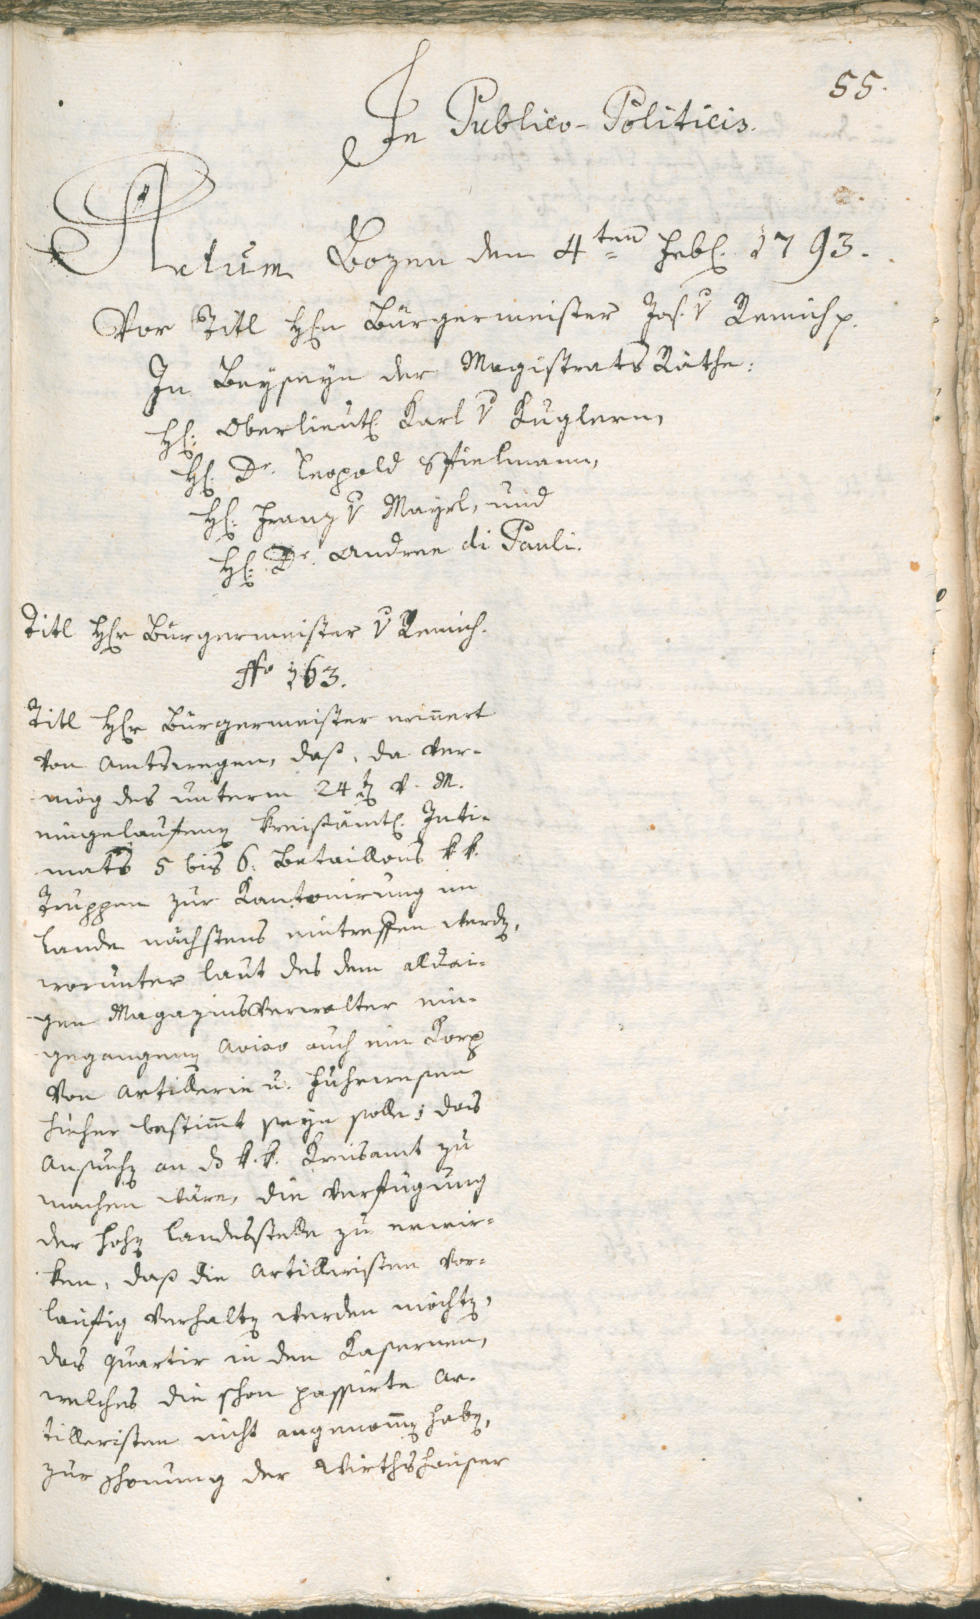 55.
In Publico-Politicis.
Actum Bozen den 4ten Feb. 1793.
Vor Titl H:n Bürgermeister Jos. v Remich p.
In Beyseyn der Magistrats Räthe:
H: Oberlieut: Karl v Kuglern,
H: Dr. Leopold Spielmann,
H: Franz v Mayrl, und
H: Dr. Andree di Pauli.
Titl Hr Bürgermeister v Remich.
No 163.
Titl Hr Bürgermeister erinnert
von Amtswegen, daß, da ver-
mög des unterm 24t v. M.
eingelaufenen kreisämtl. Inti-
mats 5 bis 6. Bataillons k k.
Truppen zur Kantonirung im
Lande nächstens eintreffen werden,
worunter laut des dem alldai-
gen Magazinsverwalter ein-
gegangenen Aviso auch ein Korp
von Artillerie u. Fuhrwesen
hieher bestimmt seyn solle; das
Ansuchen an d k. k. Kreisamt zu
machen wäre, die Verfügung
der hohen Landesstelle zu erwir-
ken, daß die Artilleristen vor-
läufig verhalten werden möchten,
das Quartir in den Kasernen,
welches die schon passirte Ar-
tilleristen nicht angenommen haben,
zur Schonung der Wirthshäuser